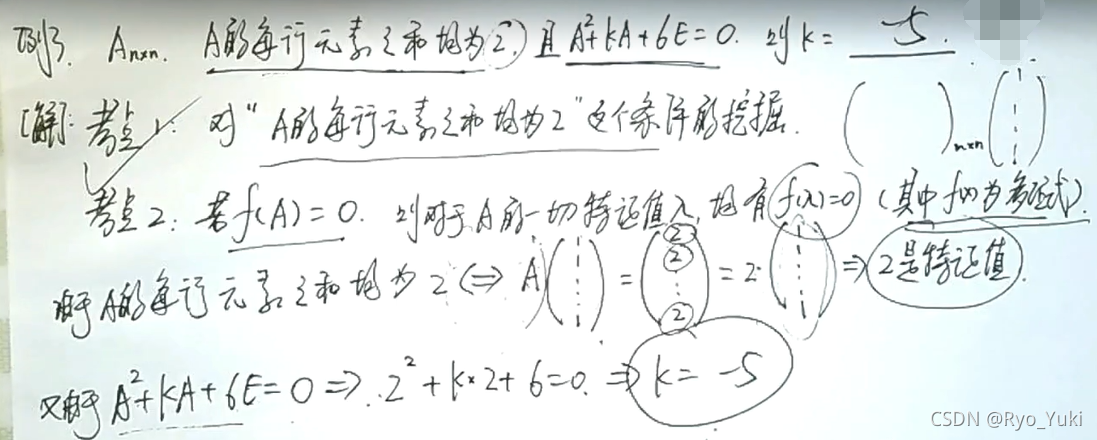 例3. Aₙₓₙ. A的每行元素之和均为2, 且A²+kA+6E=0. 则k= -5.
[解]: 考点1: 对"A的每行元素之和均为2"这个条件的挖掘. ( )ₙₓₙ (1 ⋮ 1)
考点2: 若f(A)=0. 则对于A的一切特征值λ, 均有f(λ)=0 (其中f(x)为多项式).
由于A的每行元素之和均为2 ⇔ A(1 ⋮ 1) = (2 2 ⋮ 2) = 2·(1 ⋮ 1) ⇒ 2是特征值.
又由于A²+kA+6E=0 ⇒ 2²+k×2+6=0. ⇒ k=-5
CSDN @Ryo_Yuki